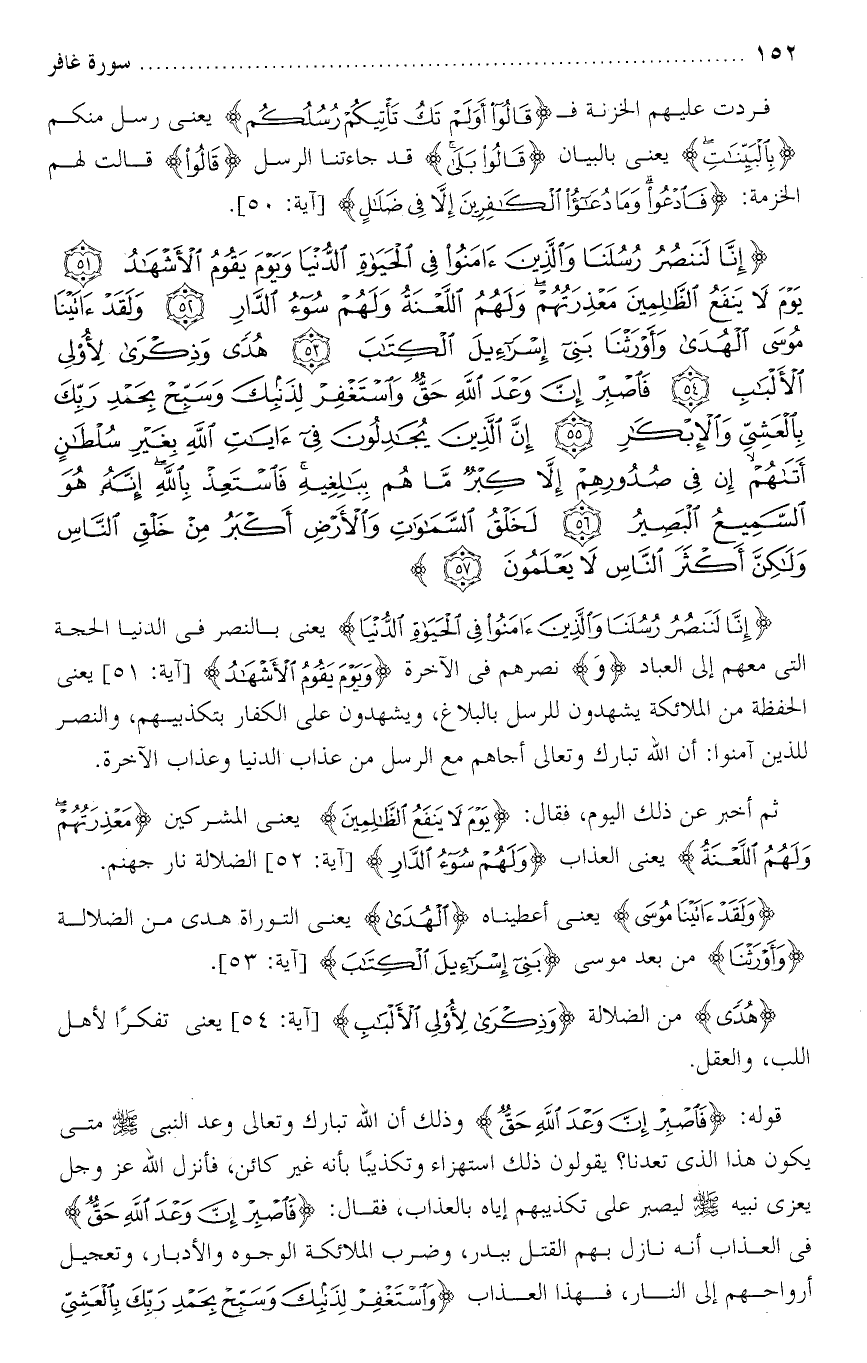 ١٥٢ ........................................ سورة غافر
فردت عليهم الخزنة فـ ﴿قَالُوٓا۟ أَوَلَمْ تَكُ تَأْتِيكُمْ رُسُلُكُم﴾ يعنى رسل منكم
﴿بِٱلْبَيِّنَٰتِۖ﴾ يعنى بالبيان ﴿قَالُوا۟ بَلَىٰۚ﴾ قد جاءتنا الرسل ﴿قَالُوا۟﴾ قالت لهم
الخزمة: ﴿فَٱدْعُوا۟ۗ وَمَا دُعَٰٓؤُا۟ ٱلْكَٰفِرِينَ إِلَّا فِى ضَلَٰلٍ﴾ [آية: ٥٠].
﴿إِنَّا لَنَنصُرُ رُسُلَنَا وَٱلَّذِينَ ءَامَنُوا۟ فِى ٱلْحَيَوٰةِ ٱلدُّنْيَا وَيَوْمَ يَقُومُ ٱلْأَشْهَٰدُ ٥١
يَوْمَ لَا يَنفَعُ ٱلظَّٰلِمِينَ مَعْذِرَتُهُمْۖ وَلَهُمُ ٱللَّعْنَةُ وَلَهُمْ سُوٓءُ ٱلدَّارِ ٥٢ وَلَقَدْ ءَاتَيْنَا
مُوسَى ٱلْهُدَىٰ وَأَوْرَثْنَا بَنِىٓ إِسْرَٰٓءِيلَ ٱلْكِتَٰبَ ٥٣ هُدًى وَذِكْرَىٰ لِأُو۟لِى
ٱلْأَلْبَٰبِ ٥٤ فَٱصْبِرْ إِنَّ وَعْدَ ٱللَّهِ حَقٌّ وَٱسْتَغْفِرْ لِذَنۢبِكَ وَسَبِّحْ بِحَمْدِ رَبِّكَ
بِٱلْعَشِىِّ وَٱلْإِبْكَٰرِ ٥٥ إِنَّ ٱلَّذِينَ يُجَٰدِلُونَ فِىٓ ءَايَٰتِ ٱللَّهِ بِغَيْرِ سُلْطَٰنٍ
أَتَىٰهُمْۙ إِن فِى صُدُورِهِمْ إِلَّا كِبْرٌ مَّا هُم بِبَٰلِغِيهِۚ فَٱسْتَعِذْ بِٱللَّهِۖ إِنَّهُۥ هُوَ
ٱلسَّمِيعُ ٱلْبَصِيرُ ٥٦ لَخَلْقُ ٱلسَّمَٰوَٰتِ وَٱلْأَرْضِ أَكْبَرُ مِنْ خَلْقِ ٱلنَّاسِ
وَلَٰكِنَّ أَكْثَرَ ٱلنَّاسِ لَا يَعْلَمُونَ ٥٧ ﴾
﴿إِنَّا لَنَنصُرُ رُسُلَنَا وَٱلَّذِينَ ءَامَنُوا۟ فِى ٱلْحَيَوٰةِ ٱلدُّنْيَا﴾ يعنى بالنصر فى الدنيا الحجة
التى معهم إلى العباد ﴿وَ﴾ نصرهم فى الآخرة ﴿وَيَوْمَ يَقُومُ ٱلْأَشْهَٰدُ﴾ [آية: ٥١] يعنى
الحفظة من الملائكة يشهدون للرسل بالبلاغ، ويشهدون على الكفار بتكذيبهم، والنصر
للذين آمنوا: أن الله تبارك وتعالى أجاهم مع الرسل من عذاب الدنيا وعذاب الآخرة.
ثم أخبر عن ذلك اليوم، فقال: ﴿يَوْمَ لَا يَنفَعُ ٱلظَّٰلِمِينَ﴾ يعنى المشركين ﴿مَعْذِرَتُهُمْۖ
وَلَهُمُ ٱللَّعْنَةُ﴾ يعنى العذاب ﴿وَلَهُمْ سُوٓءُ ٱلدَّارِ﴾ [آية: ٥٢] الضلالة نار جهنم.
﴿وَلَقَدْ ءَاتَيْنَا مُوسَى﴾ يعنى أعطيناه ﴿ٱلْهُدَىٰ﴾ يعنى التوراة هدى من الضلالة
﴿وَأَوْرَثْنَا﴾ من بعد موسى ﴿بَنِىٓ إِسْرَٰٓءِيلَ ٱلْكِتَٰبَ﴾ [آية: ٥٣].
﴿هُدًى﴾ من الضلالة ﴿وَذِكْرَىٰ لِأُو۟لِى ٱلْأَلْبَٰبِ﴾ [آية: ٥٤] يعنى تفكرًا لأهل
اللب، والعقل.
قوله: ﴿فَٱصْبِرْ إِنَّ وَعْدَ ٱللَّهِ حَقٌّ﴾ وذلك أن الله تبارك وتعالى وعد النبى ﷺ متى
يكون هذا الذى تعدنا؟ يقولون ذلك استهزاء وتكذيبًا بأنه غير كائن، فأنزل الله عز وجل
يعزى نبيه ﷺ ليصبر على تكذيبهم إياه بالعذاب، فقال: ﴿فَٱصْبِرْ إِنَّ وَعْدَ ٱللَّهِ حَقٌّ﴾
فى العذاب أنه نازل بهم القتل ببدر، وضرب الملائكة الوجوه والأدبار، وتعجيل
أرواحهم إلى النار، فهذا العذاب ﴿وَٱسْتَغْفِرْ لِذَنۢبِكَ وَسَبِّحْ بِحَمْدِ رَبِّكَ بِٱلْعَشِىِّ